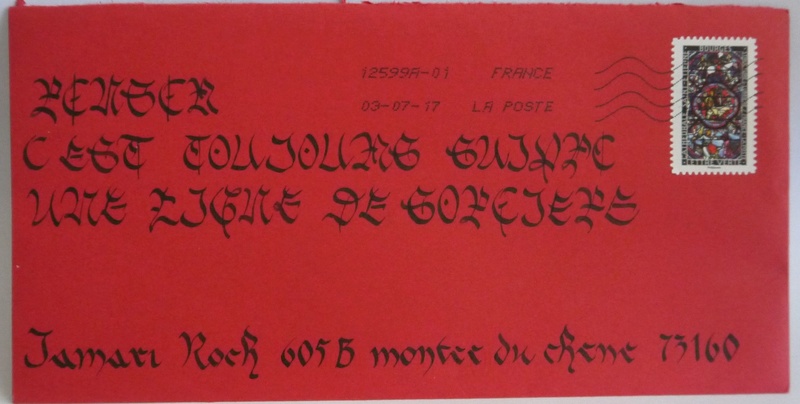 12599A-01 FRANCE
03-07-17 LA POSTE
BOURGES
LETTRE VERTE
PENSER
C EST TOUJOURS SUIVRE
UNE LIGNE DE SORCIERE
Jamari Roch 605 B montee du chene 73160